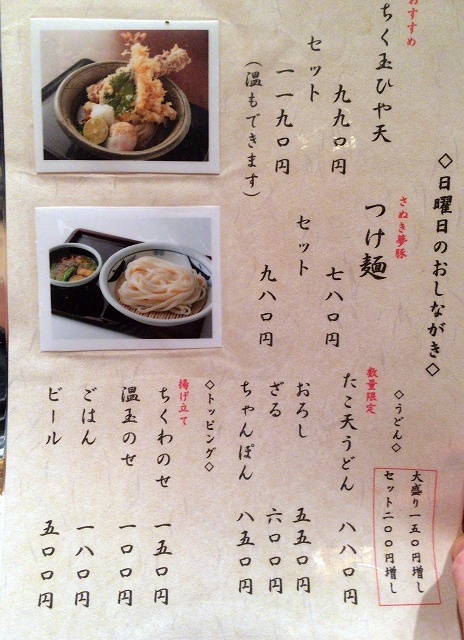 ◇日曜日のおしながき◇
おすすめ
ちく玉ひや天
九九〇円
セット
一一九〇円
(温もできます)
さぬき夢豚
つけ麺
七八〇円
セット
九八〇円
◇うどん◇
大盛り一五〇円増し
セット二〇〇円増し
数量限定
たこ天うどん 八八〇円
おろし 五五〇円
ざる 六〇〇円
ちゃんぽん 八五〇円
◇トッピング◇
揚げ立て
ちくわのせ 一五〇円
温玉のせ 一〇〇円
ごはん 一八〇円
ビール 五〇〇円